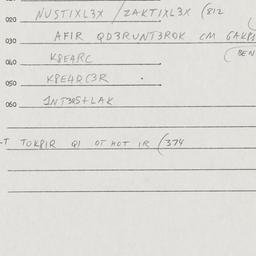 020 NUSTIXL3X / ZAKTIXL3X (812
030 AFIR QD3RUNT3ROK CM GAKPS
(BEN
040 K8E4RC
050 KPE4QC3R
060 1NT3RS+LAK
T TOKPIR QI OT HOT IR (374